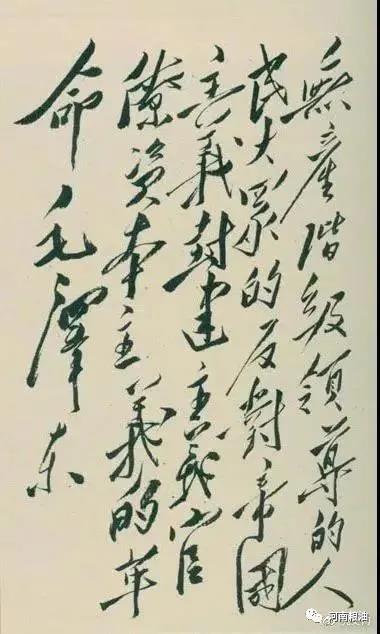 無產階級領導的人
民大眾的反對帝國
主義封建主義官
僚資本主義的革
命毛澤东
河南粮油